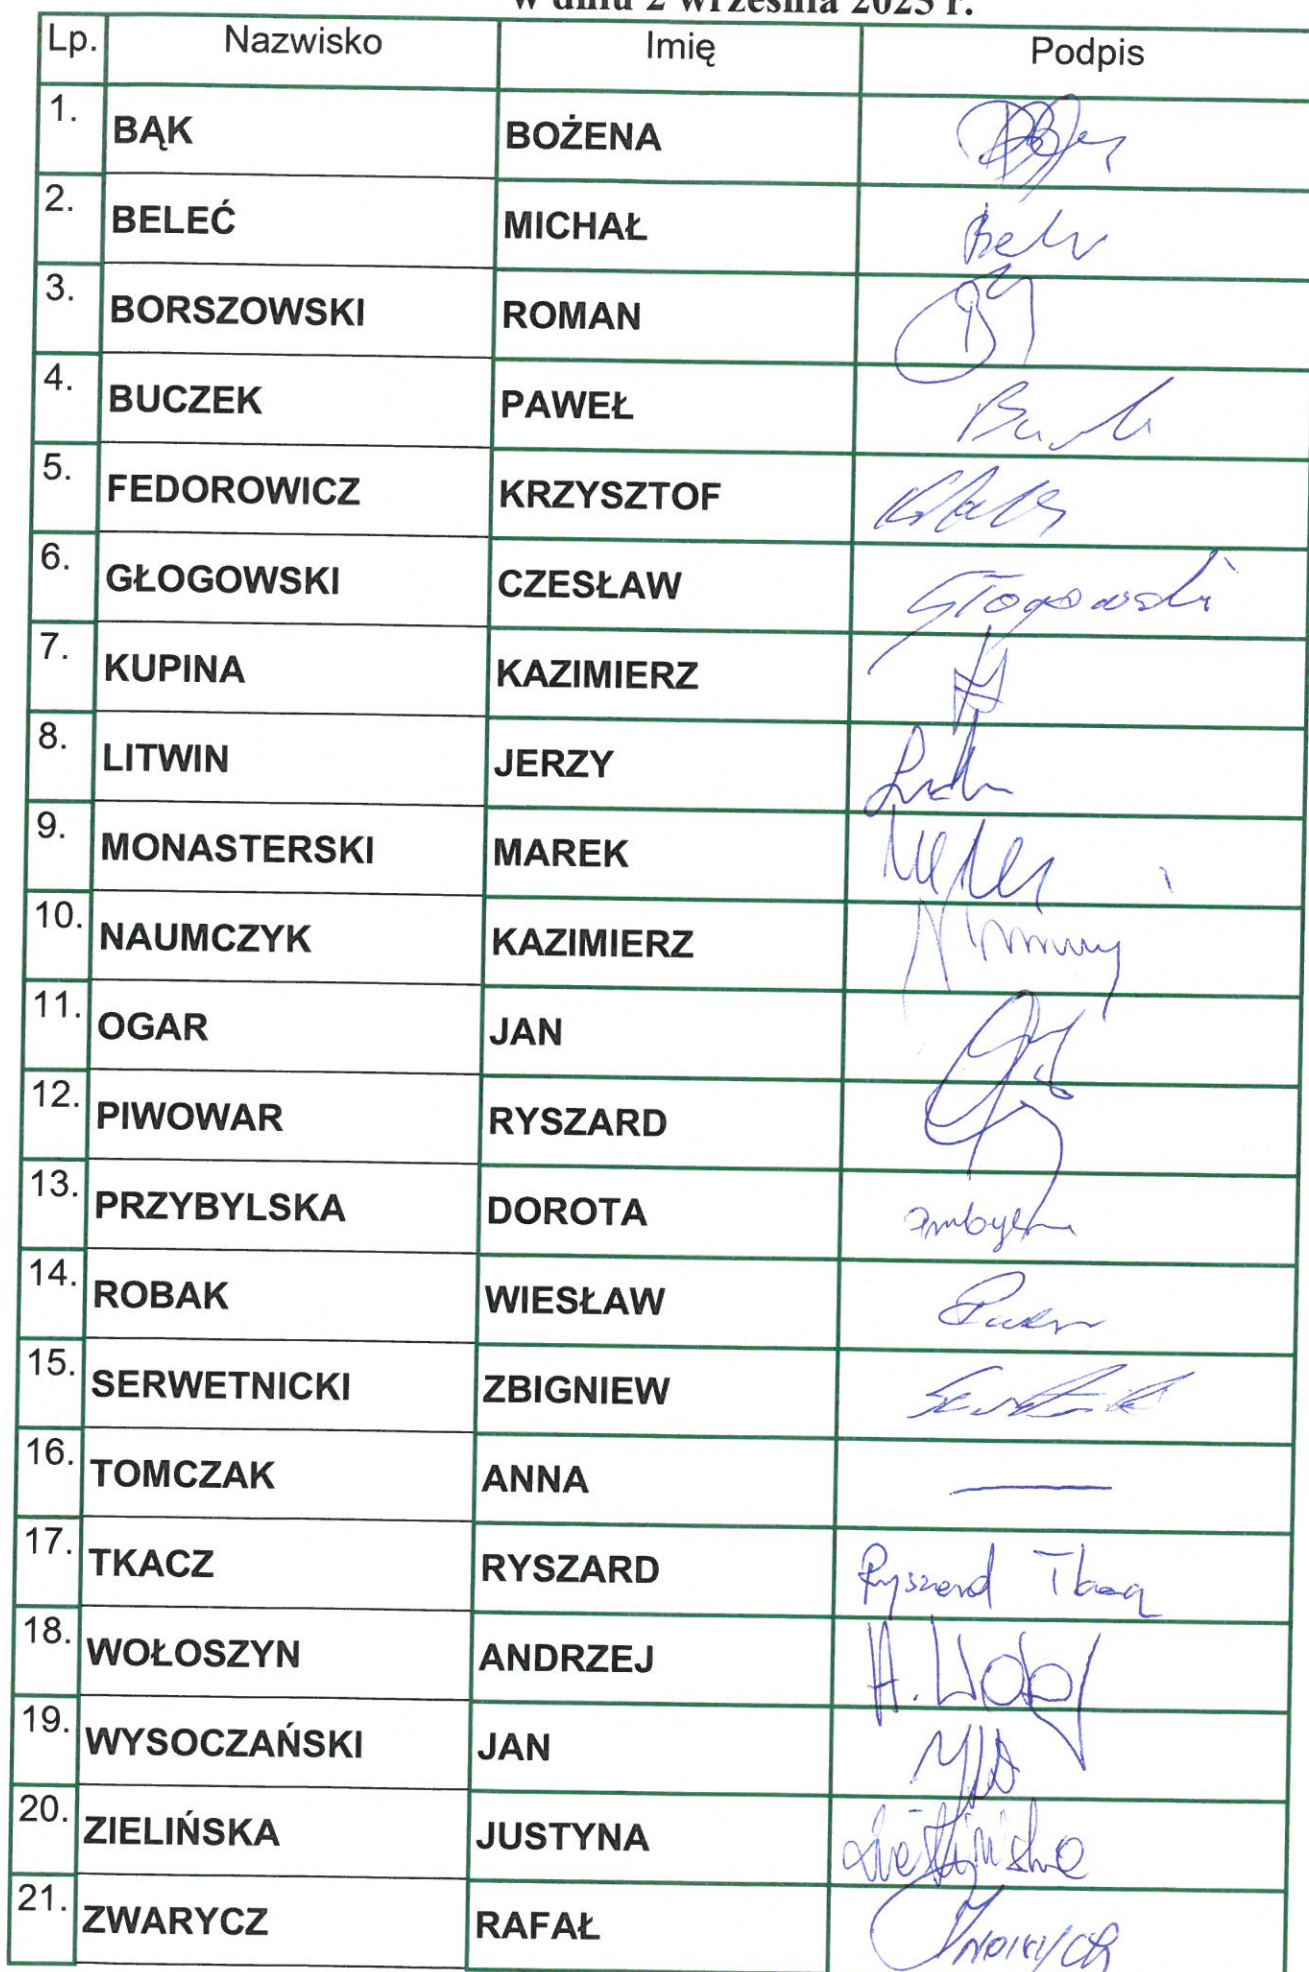 w dniu 2 września 2025 r.
Lp. Nazwisko Imię Podpis
1. BĄK BOŻENA
2. BELEĆ MICHAŁ
3. BORSZOWSKI ROMAN
4. BUCZEK PAWEŁ
5. FEDOROWICZ KRZYSZTOF
6. GŁOGOWSKI CZESŁAW Głogowski
7. KUPINA KAZIMIERZ
8. LITWIN JERZY
9. MONASTERSKI MAREK
10. NAUMCZYK KAZIMIERZ
11. OGAR JAN
12. PIWOWAR RYSZARD
13. PRZYBYLSKA DOROTA
14. ROBAK WIESŁAW
15. SERWETNICKI ZBIGNIEW
16. TOMCZAK ANNA —
17. TKACZ RYSZARD Ryszard Tkacz
18. WOŁOSZYN ANDRZEJ
19. WYSOCZAŃSKI JAN
20. ZIELIŃSKA JUSTYNA Zielińska
21. ZWARYCZ RAFAŁ